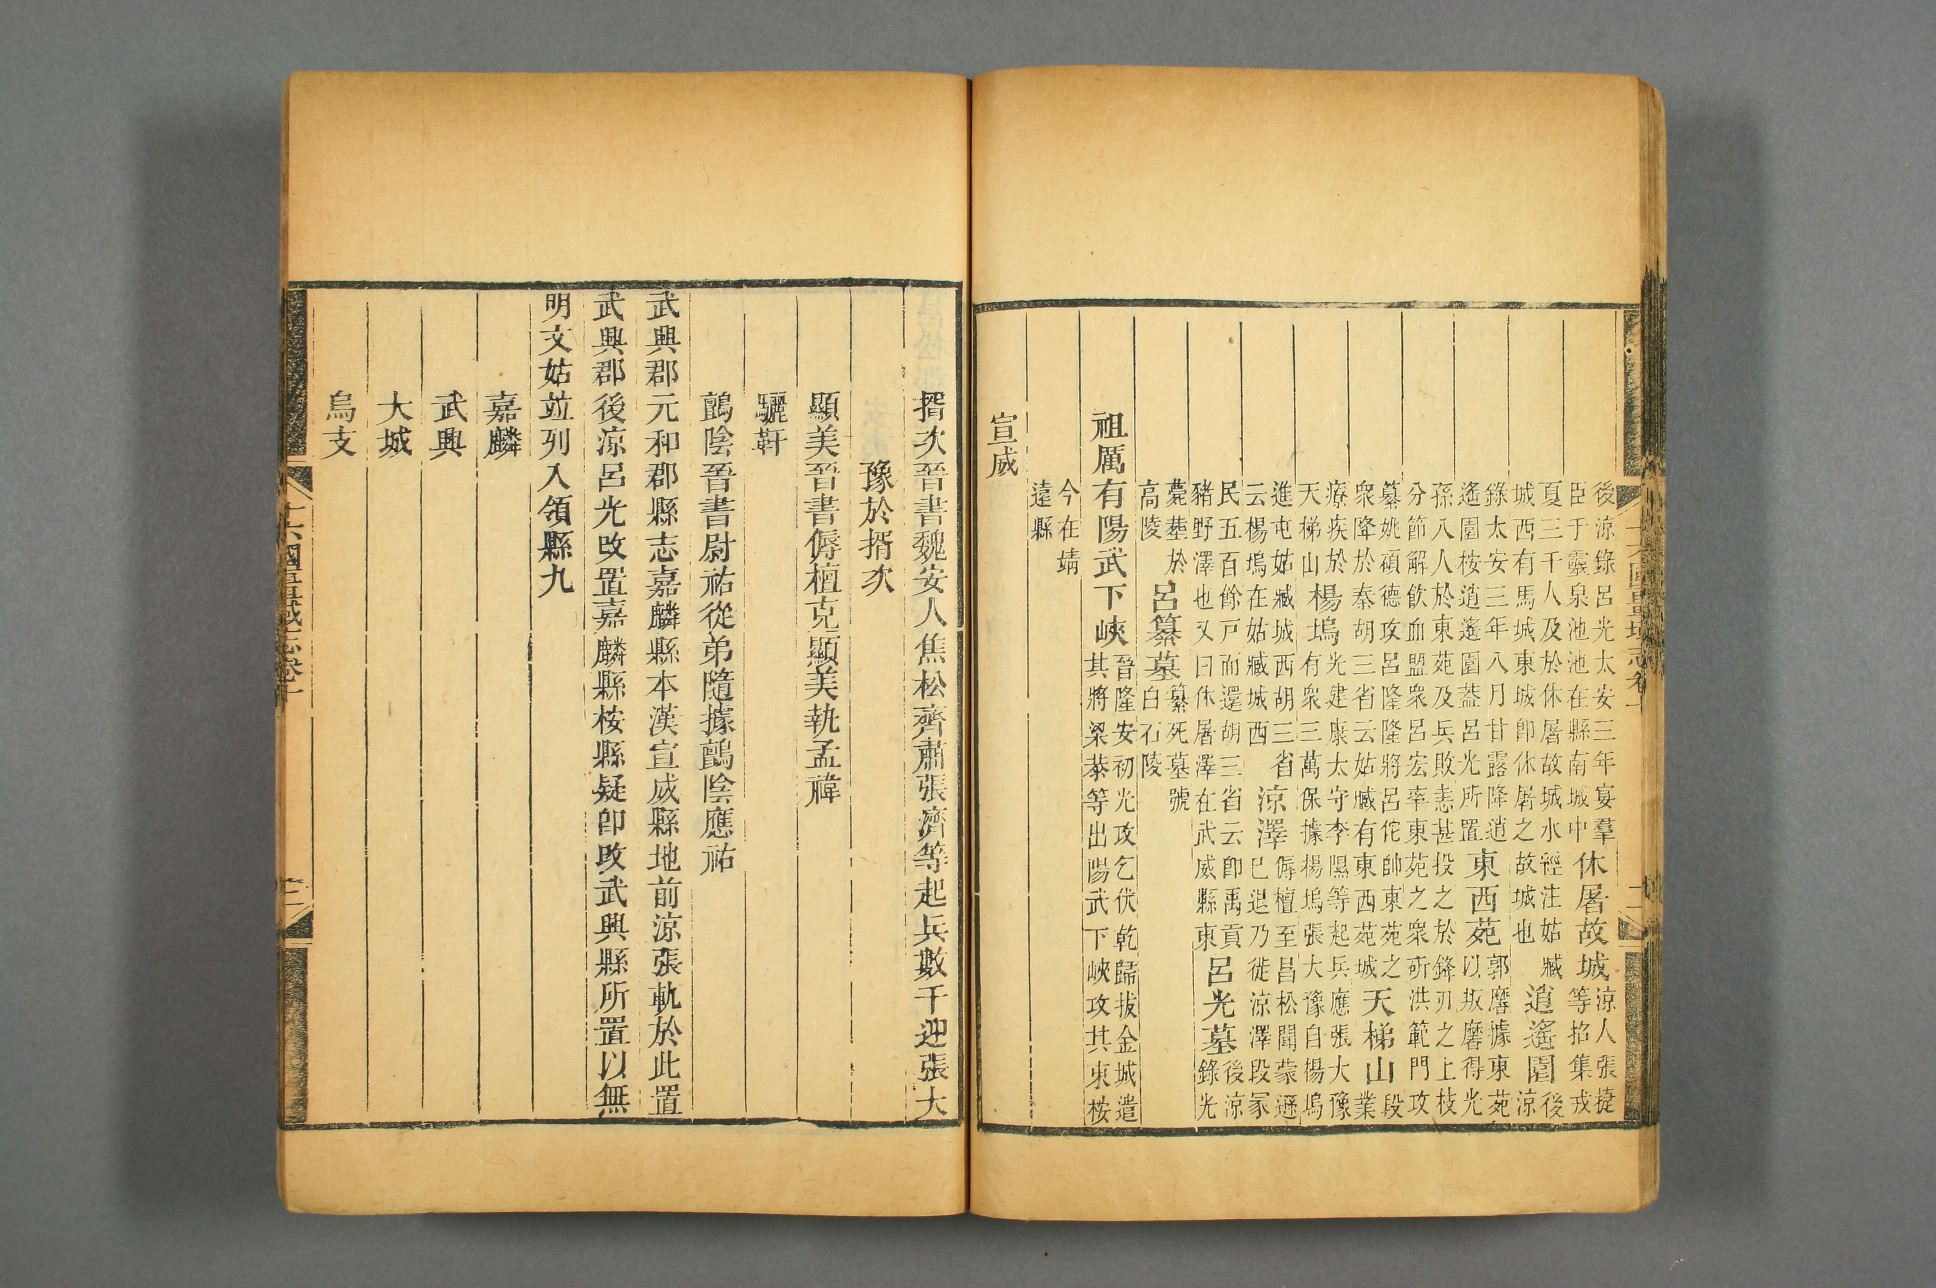 後涼錄呂光太安三年宴羣
臣于靈泉池池在縣南城中
休屠故城
涼人張捷
等招集戎
夏三千人及於休屠故城水經注姑臧
城西有馬城東城卽休屠之故城也
逍遙園
後
涼
錄太安三年八月甘露降逍
遙園桉逍遙園葢呂光所置
東西苑
郭黁據東苑
以叛黁得光
孫八人於東苑及兵敗恚甚投之於鋒刃之上枝
分節解飲血盟衆呂宏率東苑之衆斫洪範門攻
纂姚碩德攻呂隆隆將呂佗帥東苑之
衆降於秦胡三省云姑臧有東西苑城
天梯山
段
業
療疾於
天梯山
楊塢
光建康太守李隰等起兵應張大豫
有衆三萬保據楊塢張大豫自楊塢
進屯姑臧城西胡三省
云楊塢在姑臧城西
涼澤
傉檀至昌松聞蒙遜
已退乃徙涼澤段冢
民五百餘戸而還胡三省云卽禹貢
豬野澤也又曰休屠澤在武威縣東
呂光墓
後涼
錄光
薨葬於
高陵
呂纂墓
纂死墓號
白石陵
祖厲有陽武下峽
晉隆安初光攻乞伏乾歸拔金城遣
其將梁恭等出陽武下峽攻其東桉
今在靖
遠縣
宣威
揟次晉書魏安人焦松齊肅張濟等起兵數千迎張大
豫於揟次
顯美晉書傉檀克顯美執孟褘
驪靬
鸇陰晉書尉祐從弟隨據鸇陰應祐
武興郡元和郡縣志嘉麟縣本漢宣威縣地前涼張軌於此置
武興郡後涼呂光改置嘉麟縣桉縣疑卽改武興縣所置以無
明文姑竝列入領縣九
嘉麟
武興
大城
烏支
十六國疆域志卷十